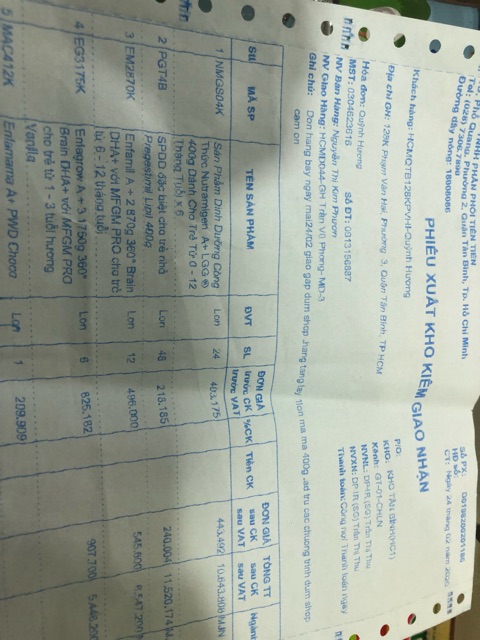 THÀNH PHẦN PHÂN PHỐI TIÊN TIẾN
Phổ Quang, Phường 2, Quận Tân Bình, Tp. Hồ Chí Minh
Tel: (028) 7306.7899
Đường dây nóng: 18006086
Số PX:
HĐ số:
CT: Ngày 24 tháng 02 năm 2020
PHIẾU XUẤT KHO KIÊM GIAO NHẬN
P/O:
KHO: KHO TÂN BÌNH(HC1)
Kênh: GT-01-CHLN
NVNL: DP-IR (SG) Trần Thị Thu
NVXN: DP-IR (SG) Trần Thị Thu
Thanh toán: Công nợ/ Thanh toán ngay
Khách hàng: HCMQTB128KPVH-Quỳnh Hương
Địa chỉ GH: 129K Phạm Văn Hai, Phường 3, Quận Tân Bình, TP HCM
Hóa đơn: Quỳnh Hương
MST: 0304623616 Số ĐT: 0913156887
NV Bán Hàng: Nguyễn Thị Kim Phượng
NV Giao Hàng: HCMD044-GH Trần Vũ Phong- MD-3
Ghi chú: Don hang bay ngay mai24/02 giao gap dum shop .hang tang lay 1lon ma ma 400g .ad tru cac chuong trinh dum shop
cam on
Stt MÃ SP TÊN SẢN PHẨM ĐVT SL ĐƠN GIÁ trước CK trước VAT %CK Tiền CK ĐƠN GIÁ sau CK sau VAT TỔNG TT sau CK sau VAT Ngành
1 NMG804K Sản Phẩm Dinh Dưỡng Công Lon 24 403,175 443,492 10,643,808
Thức Nutramigen A+ LGG ®
400g Dành Cho Trẻ Từ 0 - 12
Tháng Tuổi x 6
2 PGT4B SPDD đặc biệt cho trẻ nhỏ Lon 48 218,185 240,004 11,520,174
Pregestimil Lipil 400g
3 EM2870K Enfamil A+ 2 870g 360° Brain Lon 12 496,000 545,600
DHA+ với MFGM PRO cho trẻ
từ 6 - 12 tháng tuổi
4 EG3175K Enfagrow A+ 3 1750g 360° Lon 6 825,182 907,700
Brain DHA+ với MFGM PRO
cho trẻ từ 1 - 3 tuổi hương
Vanilla
5 MAC412K Enfamama A+ PWD Choco Lon 1 209,909